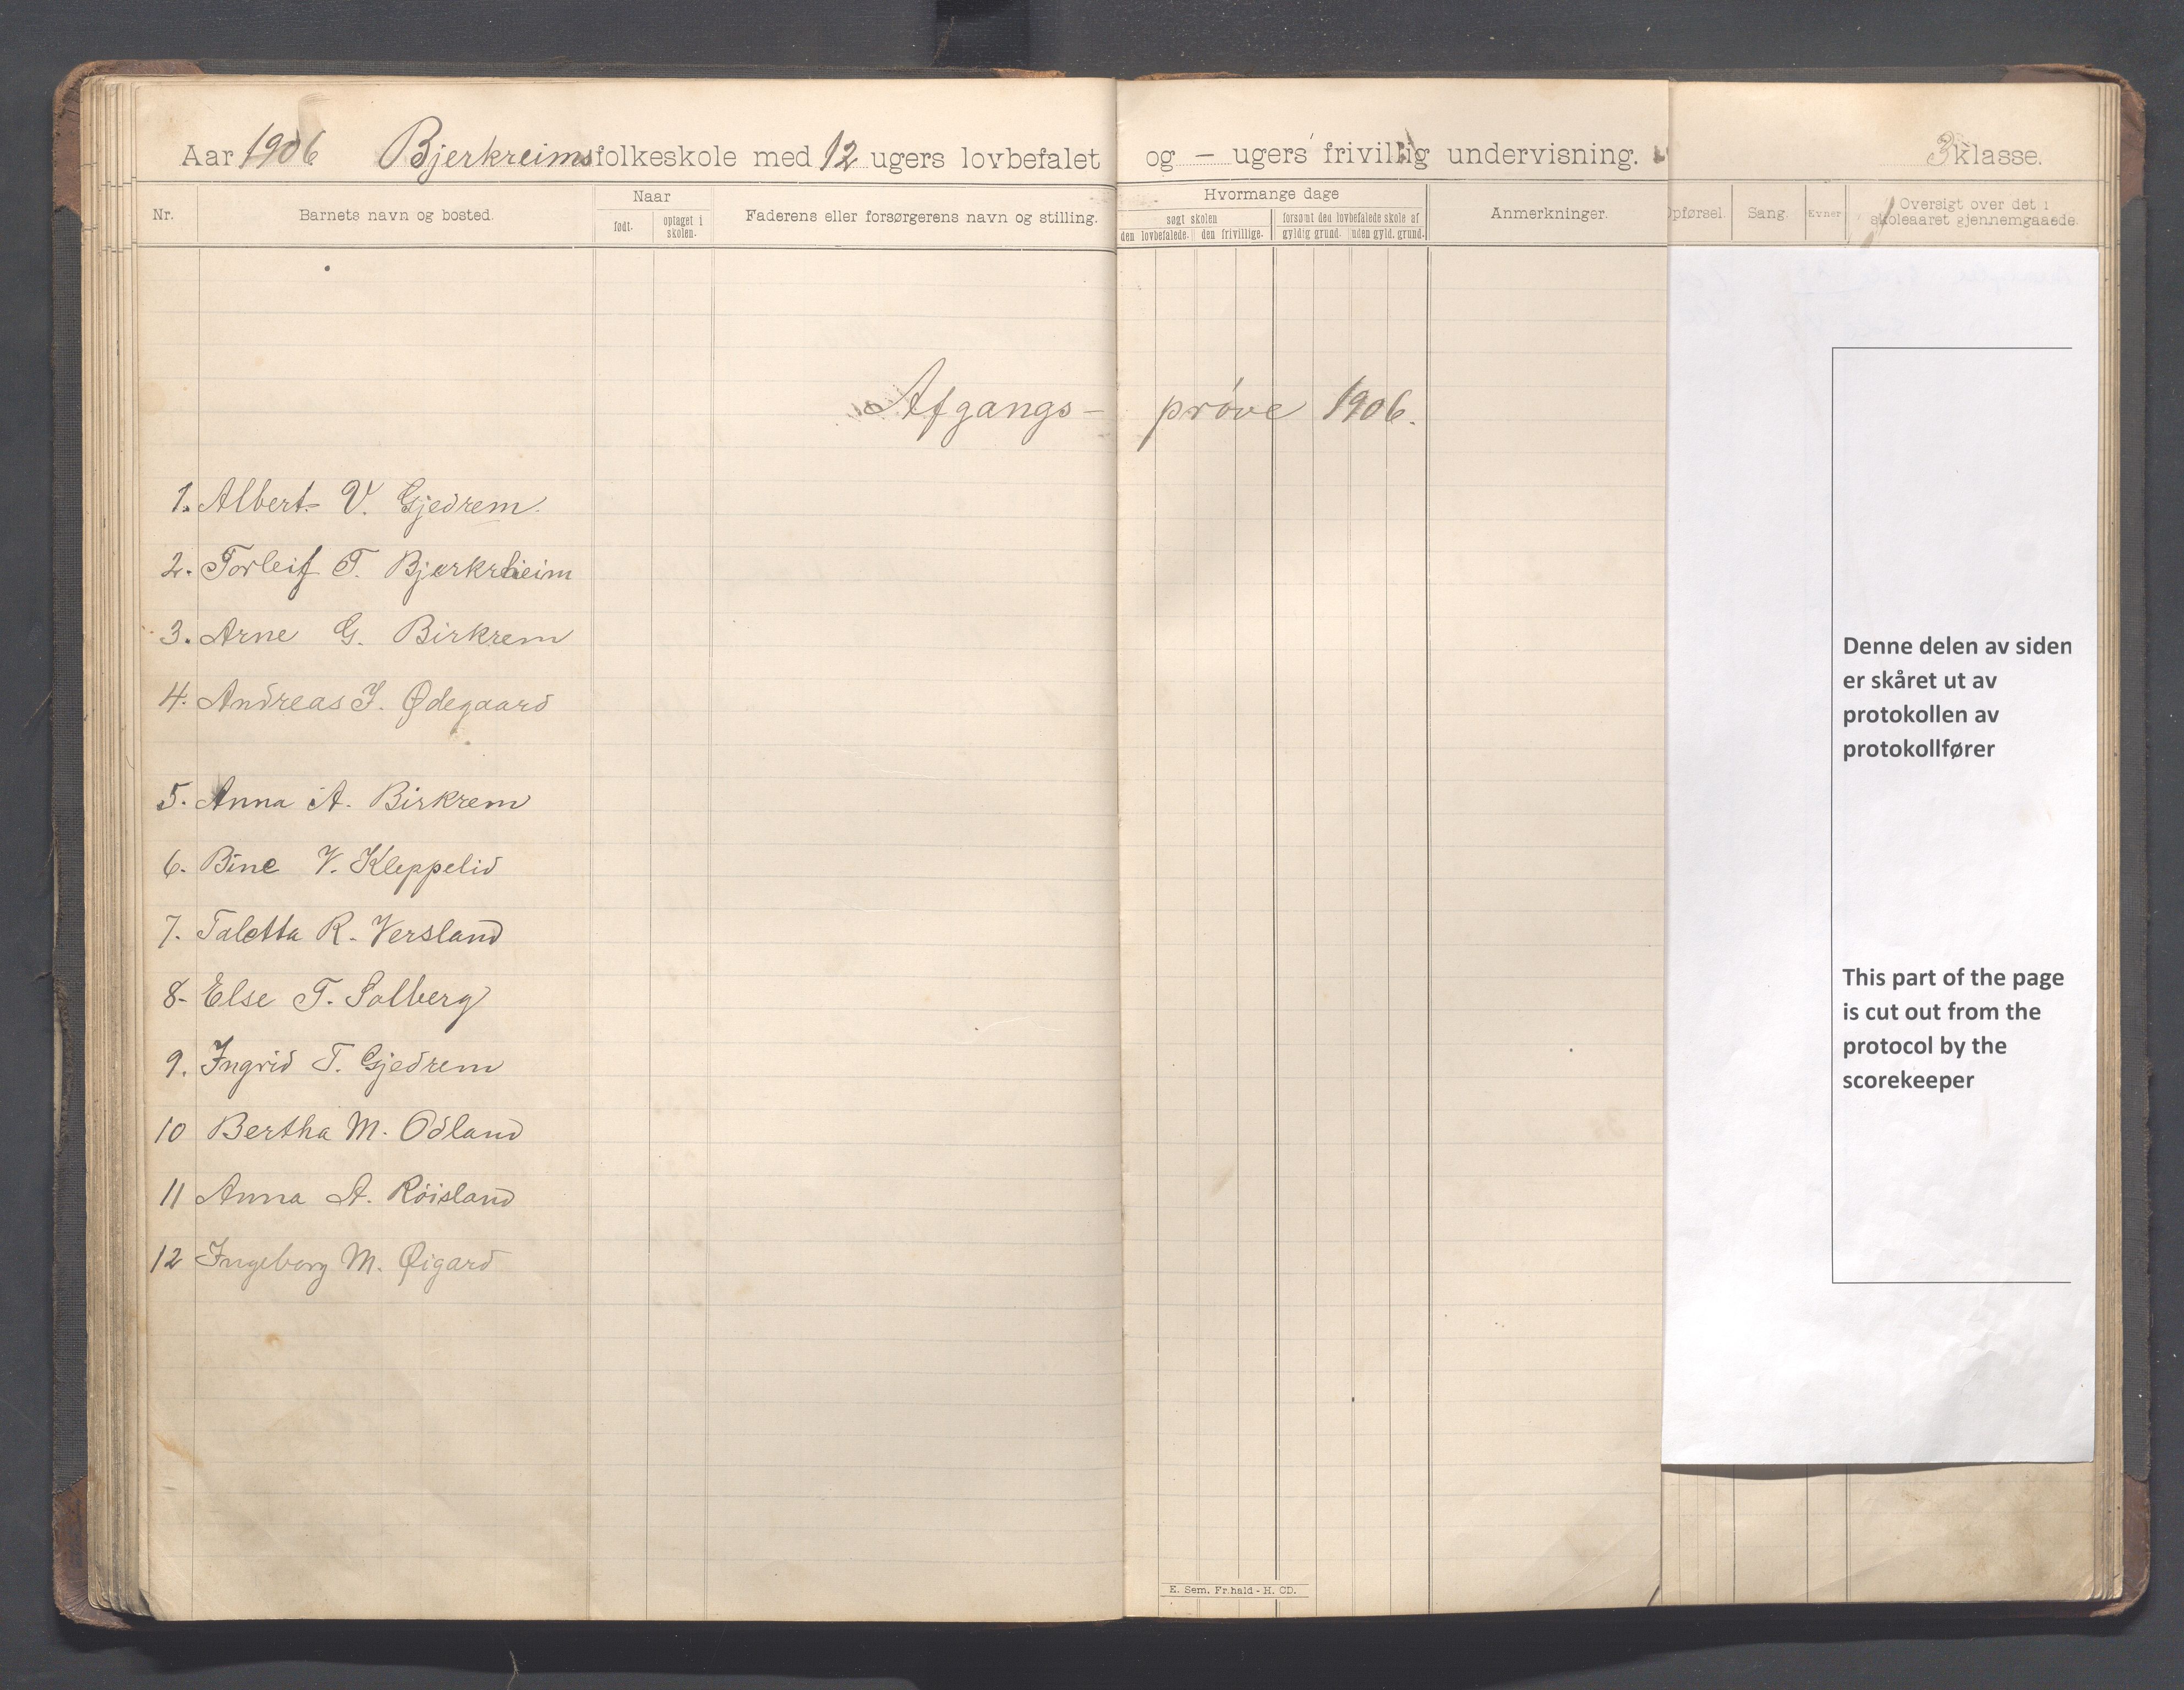 Aar 1906 Bjerkreims folkeskole med 12 ugers lovbefalet og – ugers frivillig undervisning. 3 klasse.
Nr. Barnets navn og bosted. Naar født. optaget i skolen. Faderens eller forsørgerens navn og stilling.
Hvormange dage
søgt skolen
den lovbefalede. den frivillige.
forsømt den lovbefalede skole af
gyldig grund. uden gyld. grund.
Anmerkninger.
Opførsel. Sang. Evner
Oversigt over det i
skoleaaret gjennemgaaede.
Afgangs- prøve 1906.
1. Albert V. Gjedrem.
2. Torleif T. Bjerkreim
3. Arne G. Birkrem
4. Andreas J. Ødegaard
5. Anna A. Birkrem
6. Bine V. Kleppelid
7. Taletta R. Versland
8- Else T. Solberg
9. Ingrid T. Gjedrem
10 Bertha M. Odland
11 Anna A. Röisland
12 Ingeborg M. Øigard
E. Sem. Fr.hald - H. CD.
Denne delen av siden
er skåret ut av
protokollen av
protokollfører
This part of the page
is cut out from the
protocol by the
scorekeeper